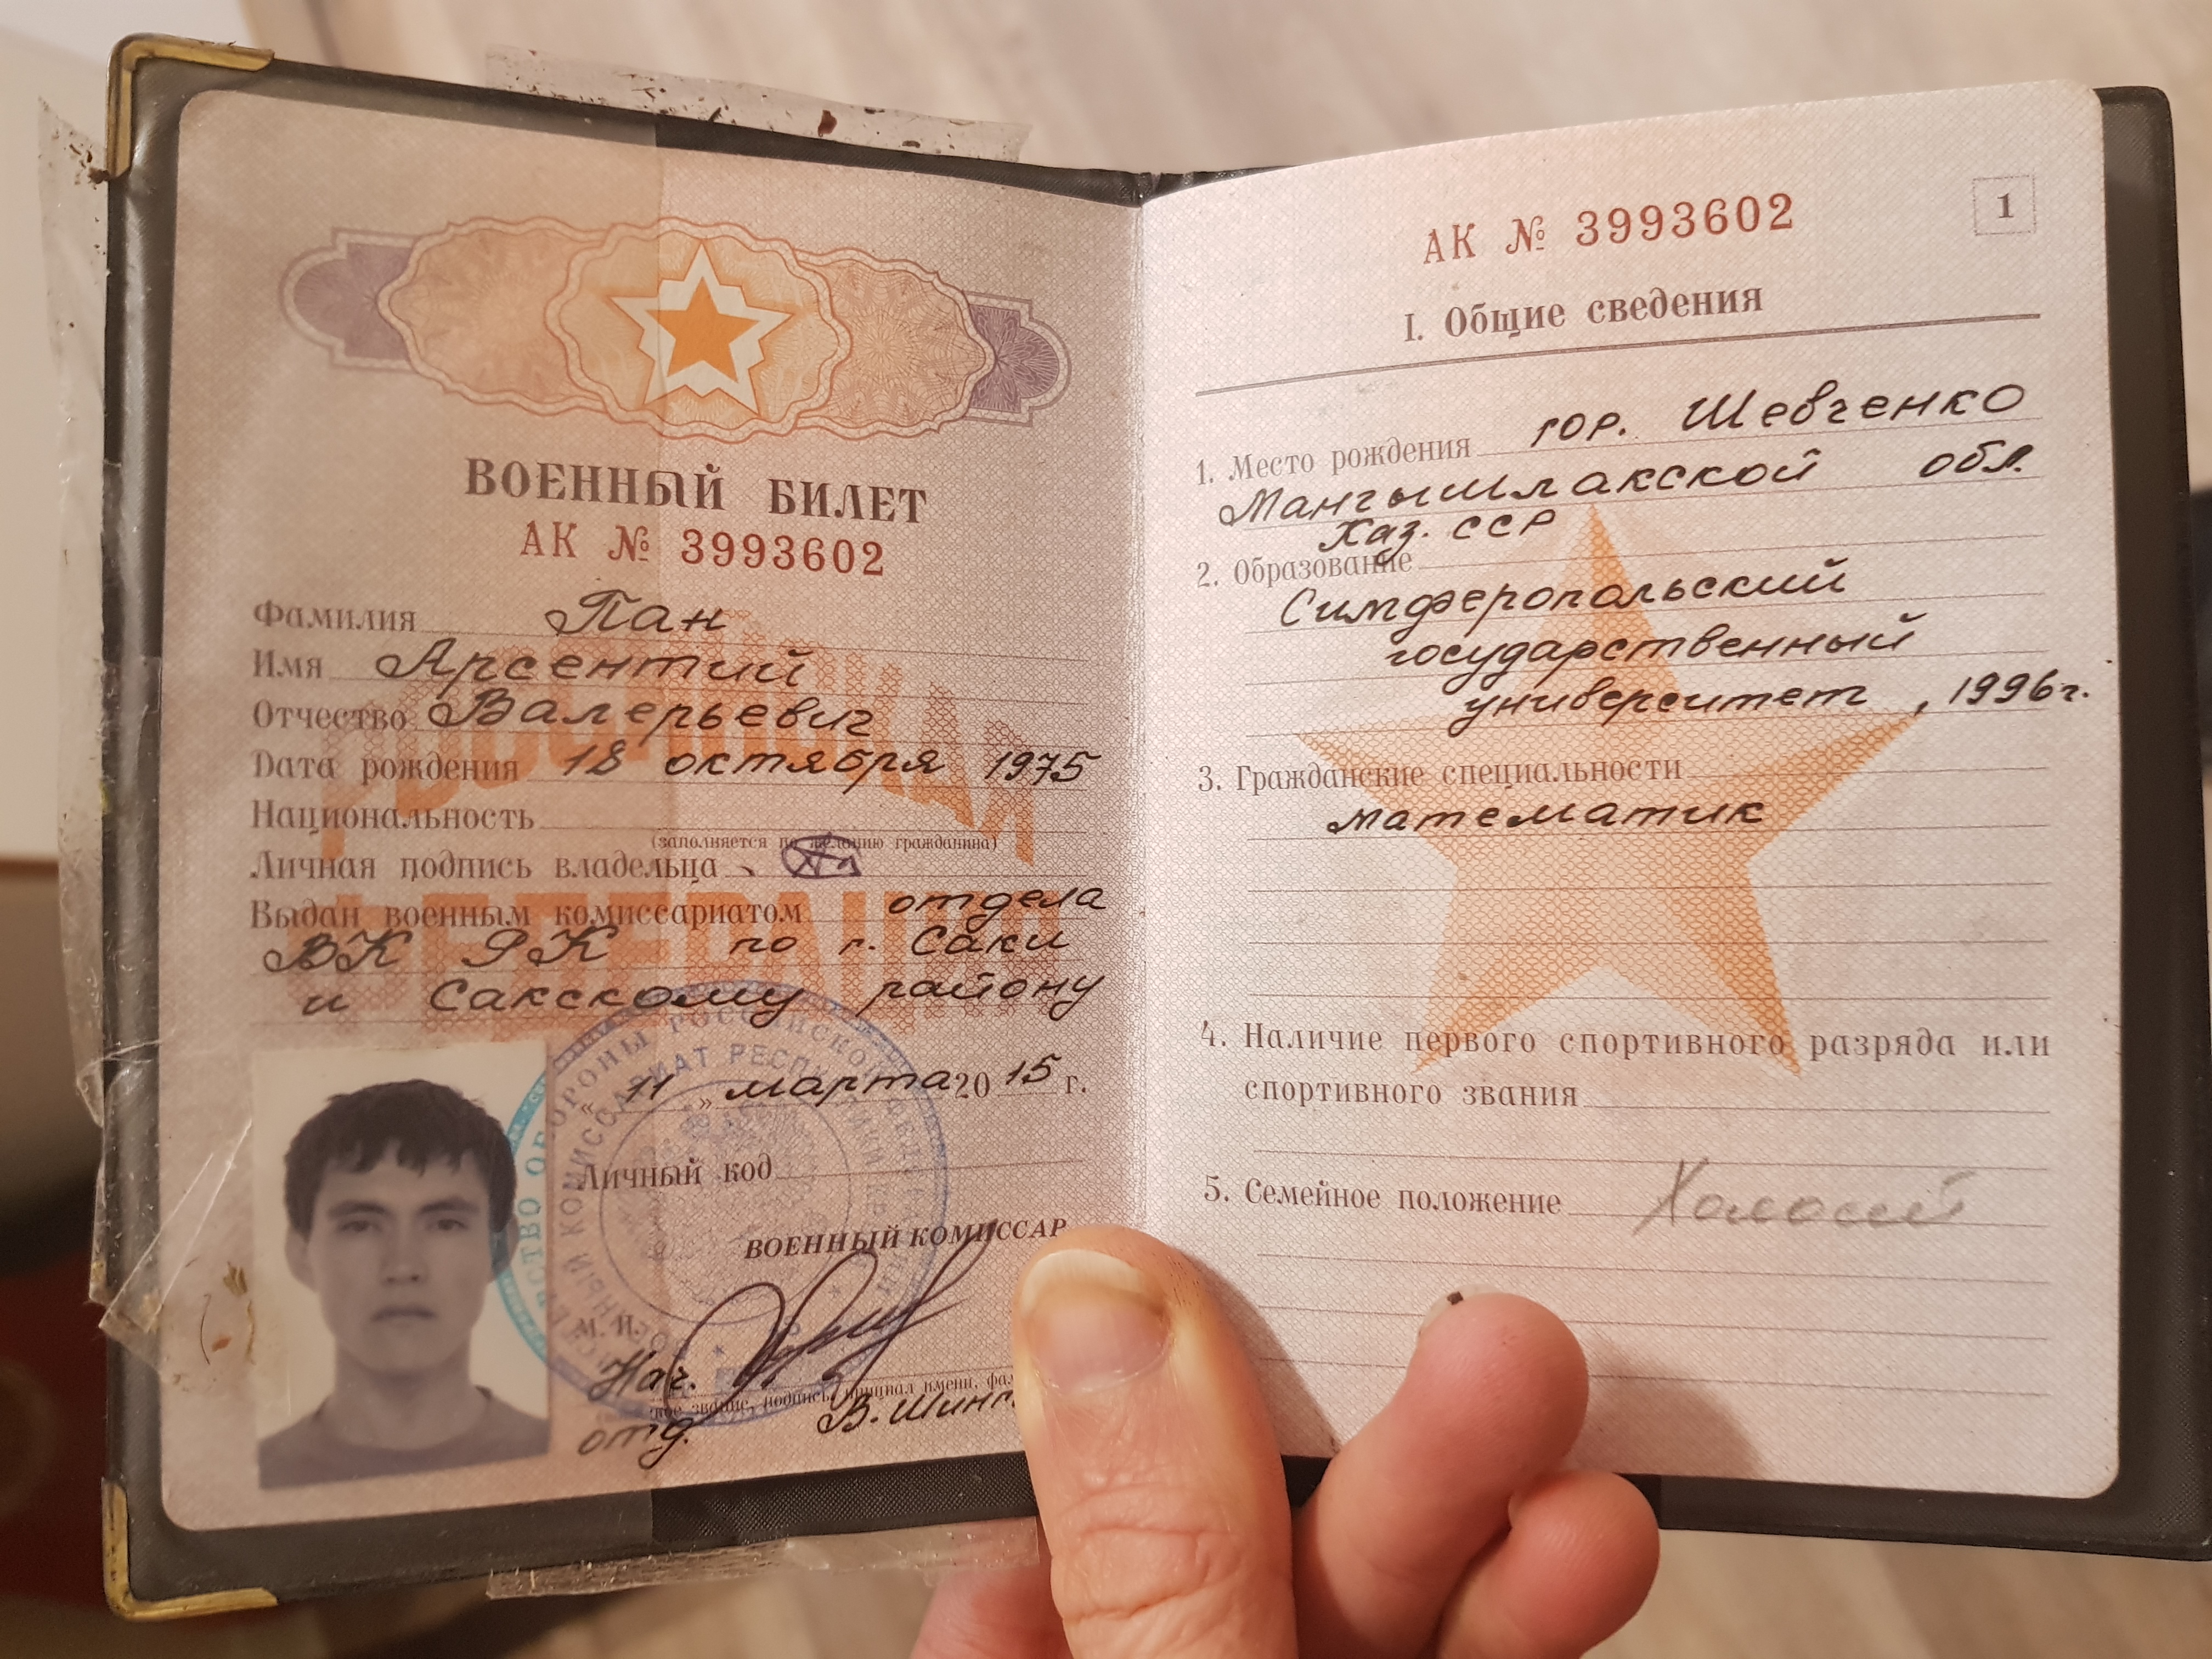 ВОЕННЫЙ БИЛЕТ
АК № 3993602
Фамилия Пан
Имя Арсентий
Отчество Валерьевич
Дата рождения 18 октября 1975
Национальность
(заполняется по желанию гражданина)
Личная подпись владельца
Выдан военным комиссариатом отдела
ВК РК по г. Саки
и Сакскому району
"11" марта 2015 г.
Личный код
ВОЕННЫЙ КОМИССАР
М. П.
Нач.
звание, подпись, инициал имени,
отд. В.
РОССИЙСКАЯ
ФЕДЕРАЦИЯ
1
АК № 3993602
I. Общие сведения
1. Место рождения гор. Шевченко
Мангышлакской обл.
Каз. ССР
2. Образование
Симферопольский
государственный
университет, 1996г.
3. Гражданские специальности
математик
4. Наличие первого спортивного разряда или
спортивного звания
5. Семейное положение Холостой